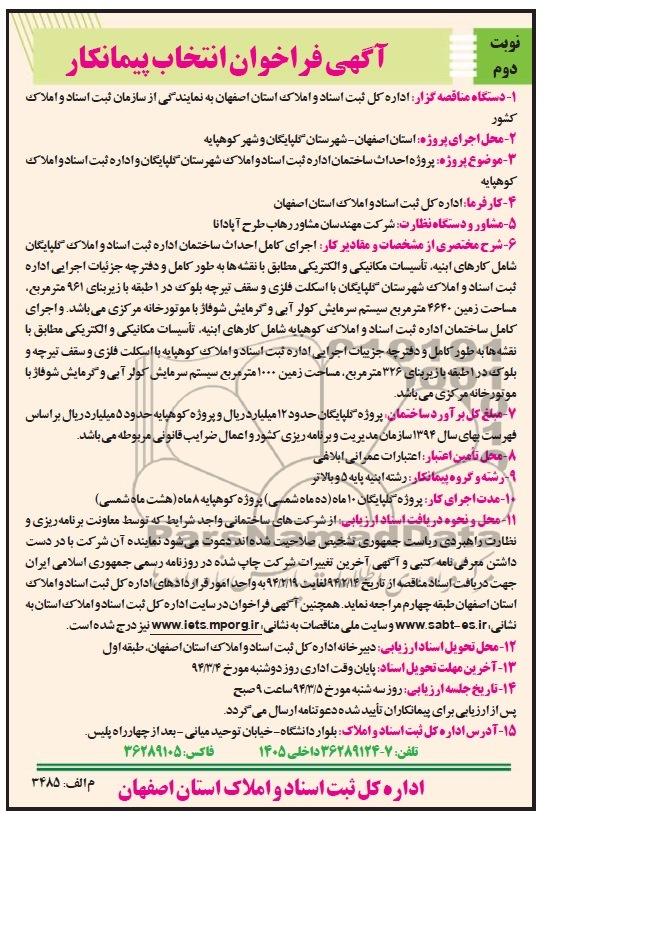 نوبت
دوم
آگهی فراخوان انتخاب پیمانکار
۱- دستگاه مناقصه گزار: اداره کل ثبت اسناد و املاک استان اصفهان به نمایندگی از سازمان ثبت اسناد و املاک
کشور
۲- محل اجرای پروژه: استان اصفهان- شهرستان گلپایگان و شهر کوهپایه
۳- موضوع پروژه: پروژه احداث ساختمان اداره ثبت اسناد و املاک شهرستان گلپایگان و اداره ثبت اسناد و املاک
کوهپایه
۴- کارفرما: اداره کل ثبت اسناد و املاک استان اصفهان
۵- مشاور و دستگاه نظارت: شرکت مهندسان مشاور رهاب طرح آپادانا
۶- شرح مختصری از مشخصات و مقادیر کار: اجرای کامل احداث ساختمان اداره ثبت اسناد و املاک گلپایگان
شامل کارهای ابنیه، تأسیسات مکانیکی و الکتریکی مطابق با نقشه ها به طور کامل و دفترچه جزئیات اجرایی اداره
ثبت اسناد و املاک شهرستان گلپایگان با اسکلت فلزی و سقف تیرچه بلوک در ۱ طبقه با زیربنای ۹۶۱ مترمربع،
مساحت زمین ۴۶۴۰ مترمربع سیستم سرمایش کولر آبی و گرمایش شوفاژ با موتورخانه مرکزی می باشد. و اجرای
کامل ساختمان اداره ثبت اسناد و املاک کوهپایه شامل کارهای ابنیه، تأسیسات مکانیکی و الکتریکی مطابق با
نقشه ها به طور کامل و دفترچه جزییات اجرایی اداره ثبت اسناد و املاک کوهپایه با اسکلت فلزی و سقف تیرچه و
بلوک در ۱ طبقه با زیربنای ۳۲۶ مترمربع، مساحت زمین ۱۰۰۰ مترمربع سیستم سرمایش کولر آبی و گرمایش شوفاژ با
موتورخانه مرکزی می باشد.
۷- مبلغ کل برآورد ساختمان: پروژه گلپایگان حدود ۱۲ میلیارد ریال و پروژه کوهپایه حدود ۵ میلیارد ریال بر اساس
فهرست بهای سال ۱۳۹۴ سازمان مدیریت و برنامه ریزی کشور و اعمال ضرایب قانونی مربوطه می باشد.
۸- محل تأمین اعتبار: اعتبارات عمرانی ابلاغی
۹- رشته و گروه پیمانکار: رشته ابنیه پایه ۵ و بالاتر
۱۰- مدت اجرای کار: پروژه گلپایگان ۱۰ ماه (ده ماه شمسی) پروژه کوهپایه ۸ ماه (هشت ماه شمسی)
۱۱- محل و نحوه دریافت اسناد ارزیابی: از شرکت های ساختمانی واجد شرایط که توسط معاونت برنامه ریزی و
نظارت راهبردی ریاست جمهوری تشخیص صلاحیت شده اند دعوت می شود نماینده آن شرکت با در دست
داشتن معرفی نامه کتبی و آگهی آخرین تغییرات شرکت چاپ شده در روزنامه رسمی جمهوری اسلامی ایران
جهت دریافت اسناد مناقصه از تاریخ ۹۴/۲/۱۴ لغایت ۹۴/۲/۱۹ به واحد امور قراردادهای اداره کل ثبت اسناد و املاک
استان اصفهان طبقه چهارم مراجعه نماید. همچنین آگهی فراخوان در سایت اداره کل ثبت اسناد و املاک استان به
نشانی: www.sabt-es.ir و سایت ملی مناقصات به نشانی: www.iets.mporg.ir نیز درج شده است.
۱۲- محل تحویل اسناد ارزیابی: دبیرخانه اداره کل ثبت اسناد و املاک استان اصفهان، طبقه اول
۱۳- آخرین مهلت تحویل اسناد: پایان وقت اداری روز دوشنبه مورخ ۹۴/۳/۴
۱۴- تاریخ جلسه ارزیابی: روز سه شنبه مورخ ۹۴/۳/۵ ساعت ۹ صبح
پس از ارزیابی برای پیمانکاران تأیید شده دعوتنامه ارسال می گردد.
۱۵- آدرس اداره کل ثبت اسناد و املاک: بلوار دانشگاه- خیابان توحید میانی - بعد از چهارراه پلیس.
تلفن: ۷-۳۶۲۸۹۱۲۴ داخلی ۱۴۰۵ فاکس: ۳۶۲۸۹۱۰۵
اداره کل ثبت اسناد و املاک استان اصفهان
م الف: ۳۴۸۵